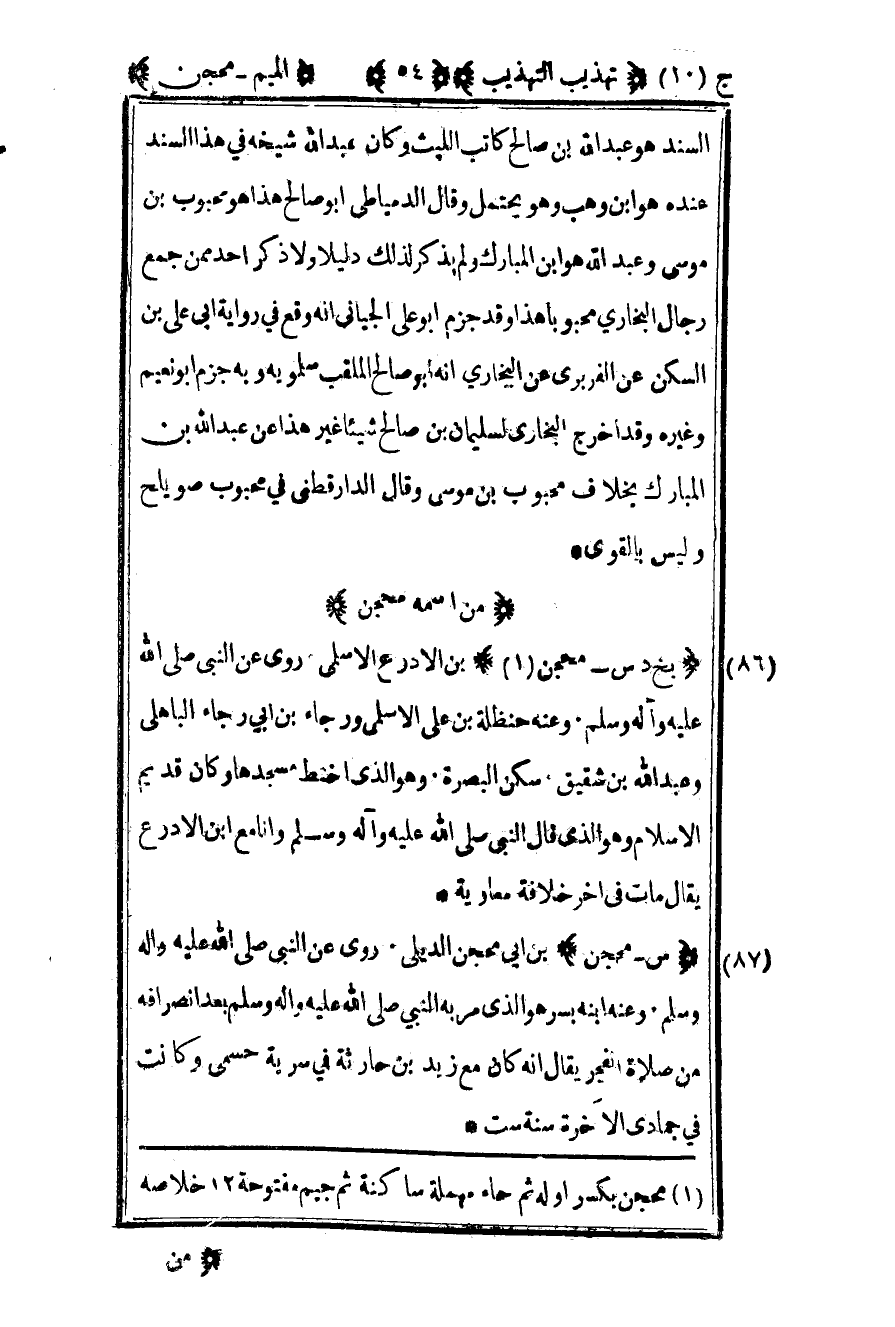 ج (١٠) ﴿ تهذيب التهذيب ﴾ ﴿ ٥٤ ﴾ ﴿ الميم ـ محجن ﴾
السند هو عبد الله بن صالح كاتب الليث وكان عبد الله شيخه في هذا السند
عنده هو ابن وهب وهو يحتمل وقال الدمياطى ابو صالح هذا هو محبوب بن
موسى وعبد الله هو ابن المبارك ولم يذكر لذلك دليلا ولا ذكر احد ممن جمع
رجال البخاري محبوبا هذا وقد جزم ابو على الجياني انه وقع في رواية ابى على بن
السكن عن الفربرى عن البخاري انه أبو صالح الملقب سلمويه وبه جزم ابو نعيم
وغيره وقد أخرج البخارى لسليمان بن صالح شيئا غير هذا عن عبد الله بن
المبارك بخلاف محبوب بن موسى وقال الدارقطنى في محبوب صويلح
وليس بالقوى *
﴿ من اسمه محجن ﴾
(٨٦) ﴿ بخ د س ـ محجن (١) ﴾ بن الادرع الاسلمى ٠ روى عن النبى صلى الله
عليه وآله وسلم ٠ وعنه حنظلة بن على الاسلمى ورجاء بن ابي رجاء الباهلى
وعبد الله بن شقيق ٠ سكن البصرة ٠ وهو الذى اختط مسجدها وكان قديم
الاسلام وهو الذى قال النبى صلى الله عليه وآله وسلم وانا مع ابن الادرع
يقال مات فى اخر خلافة معاوية *
(٨٧) ﴿ س ـ محجن ﴾ بن ابي محجن الديلى ٠ روى عن النبى صلى الله عليه واله
وسلم ٠ وعنه ابنه بسر هو الذى مر به النبي صلى الله عليه واله وسلم بعد انصرافه
من صلاة الفجر يقال انه كان مع زيد بن حارثة في سرية حسمى وكانت
في جمادى الآخرة سنة ست *
(١) محجن بكسر اوله ثم حاء مهملة ساكنة ثم جيم مفتوحة ١٢ خلاصه
﴿ من